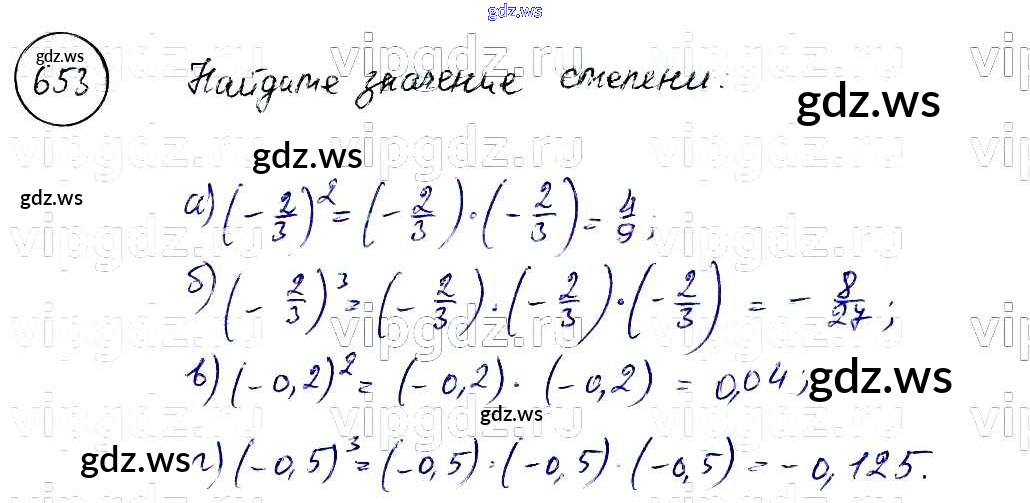 gdz.ws
gdz.ws
653 Найдите значение степени:
gdz.ws
vipgdz.ru vipgdz.ru vipgdz.ru
gdz.ws
gdz.ws
а) (-2/3)^2 = (-2/3)·(-2/3) = 4/9;
б) (-2/3)^3 = (-2/3)·(-2/3)·(-2/3) = -8/27;
в) (-0,2)^2 = (-0,2)·(-0,2) = 0,04;
gdz.ws
gdz.ws
gdz.ws
г) (-0,5)^3 = (-0,5)·(-0,5)·(-0,5) = -0,125.